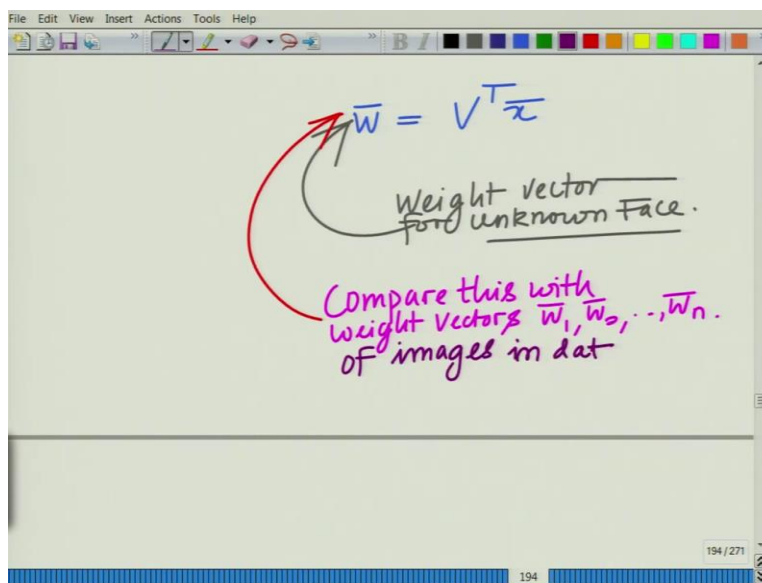 File Edit View Insert Actions Tools Help
B I
w̅ = Vᵀx̅
Weight vector
for unknown Face.
Compare this with
weight vectors w̅₁, w̅₂, .., w̅n.
of images in dat
194 / 271
194